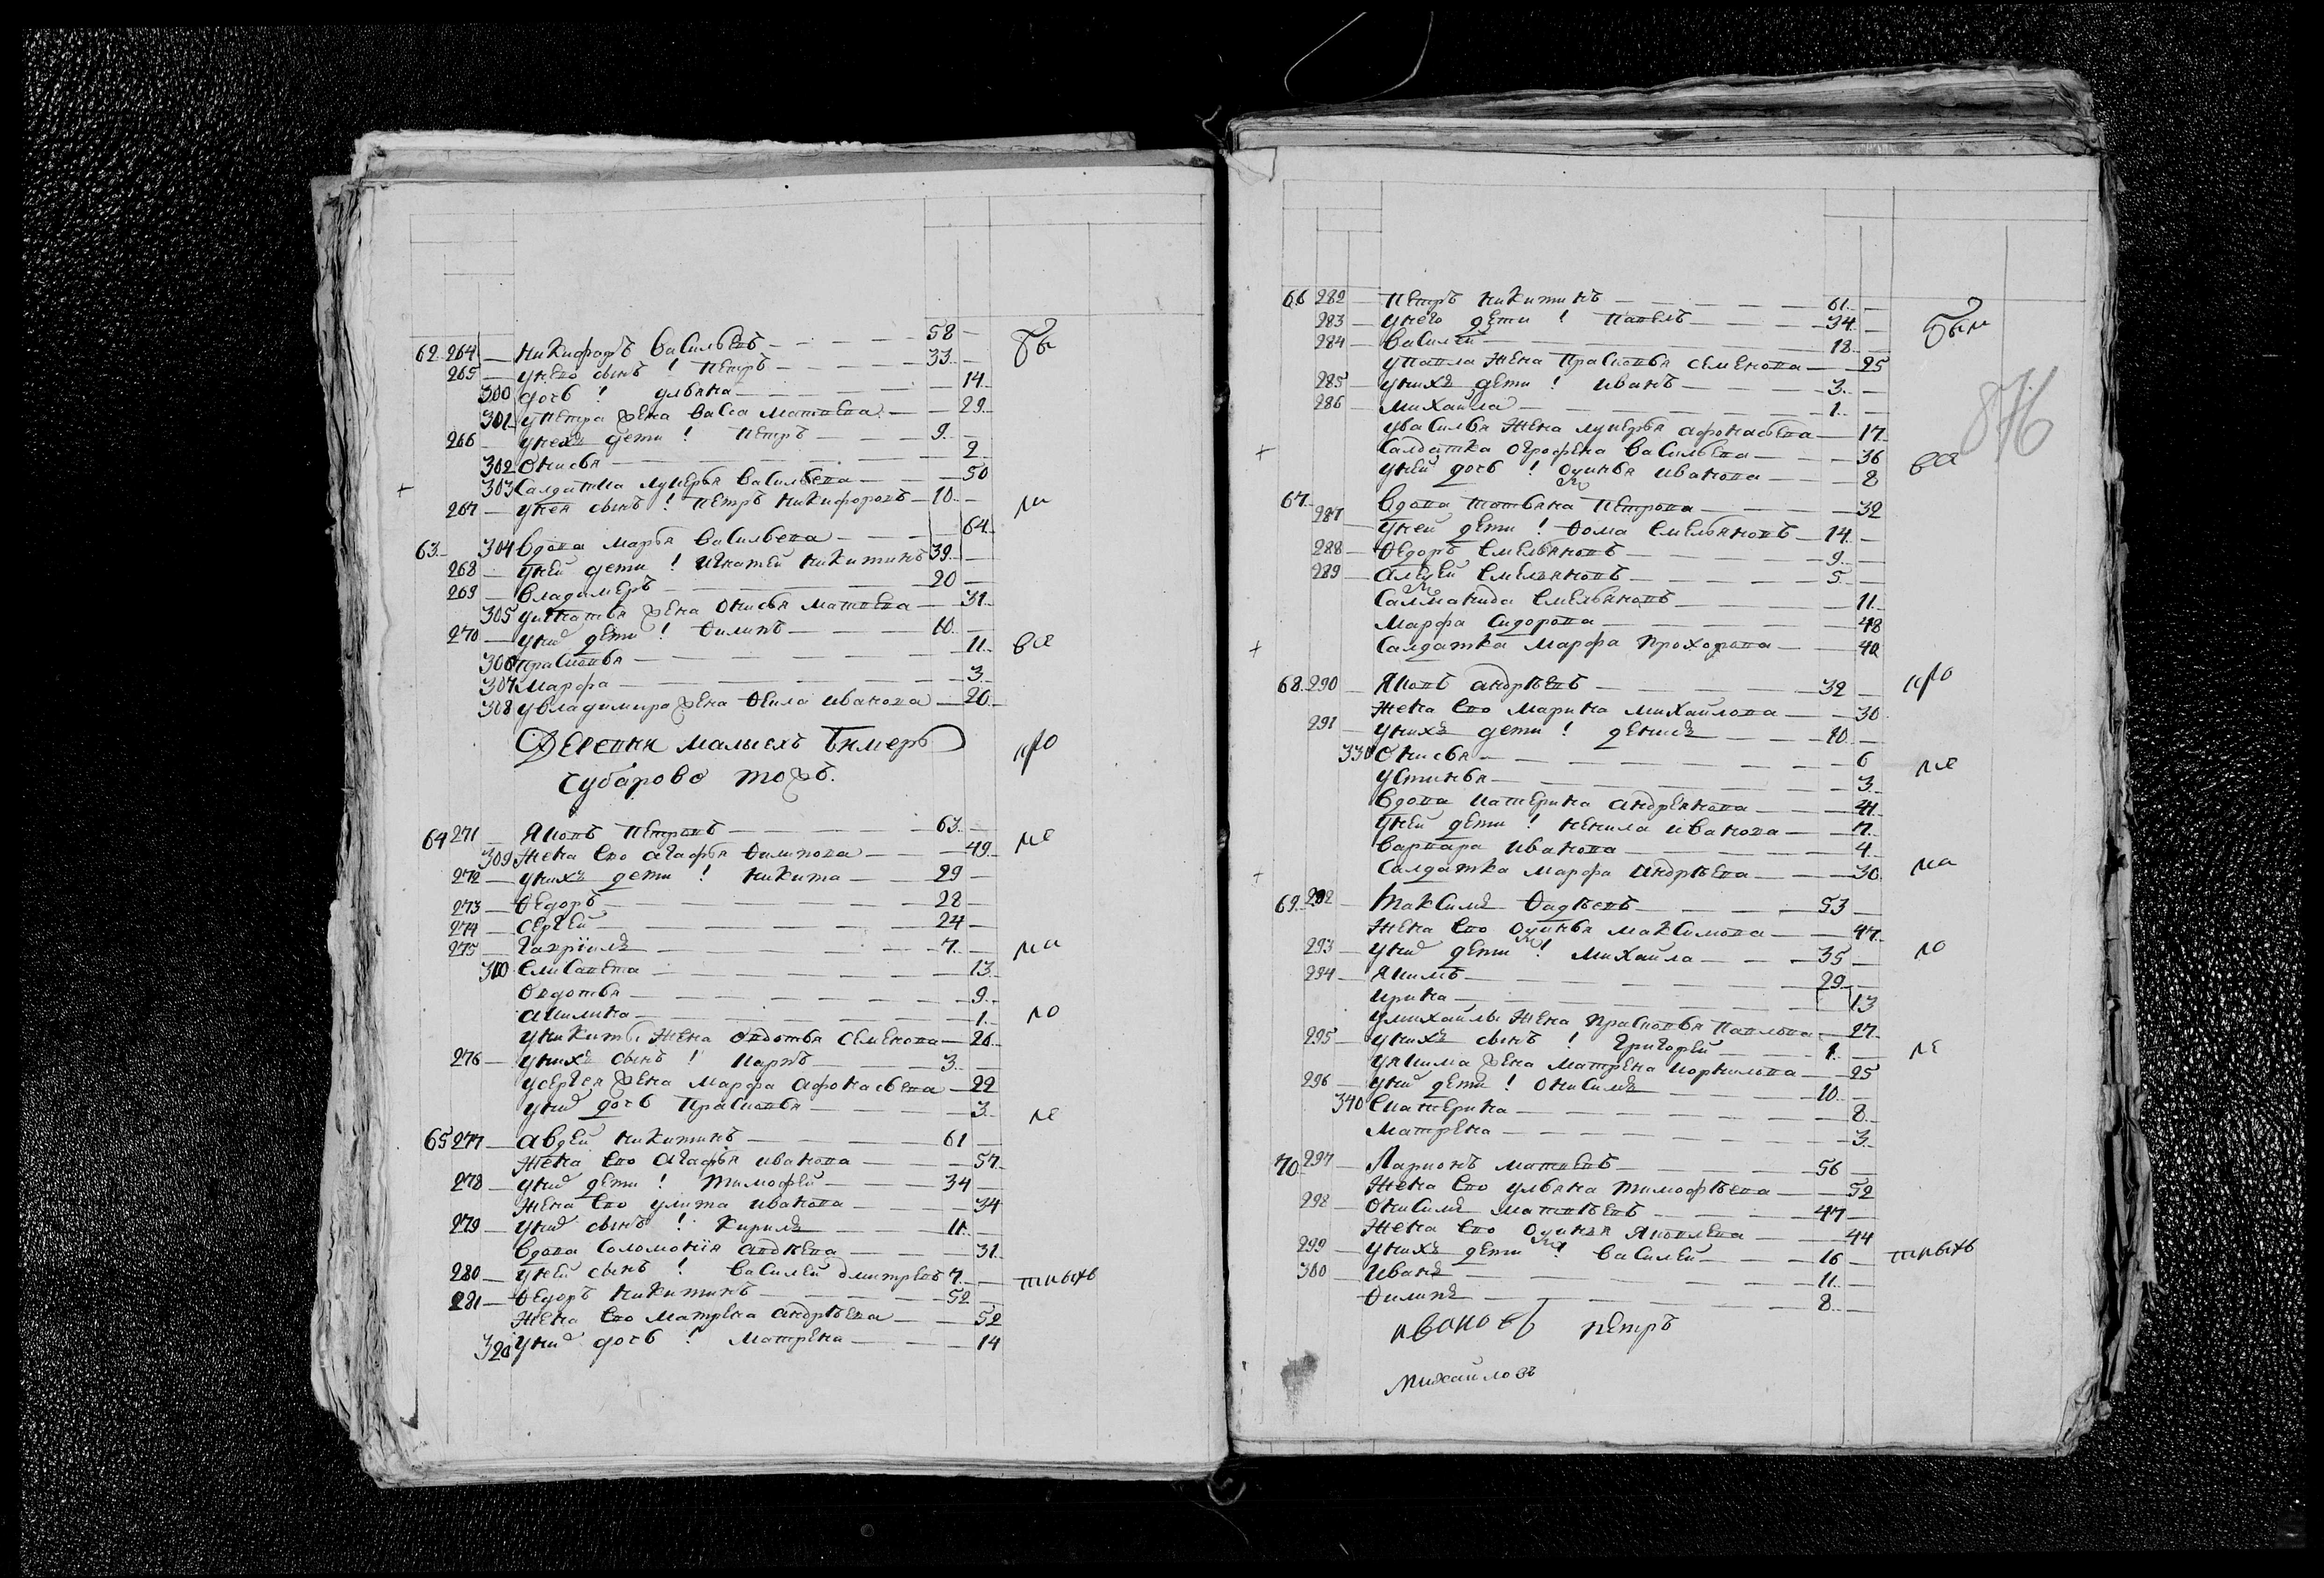 62 264 Никифоръ Васильевъ 58
265 У него сынъ ! Петръ 33
300 дочь ! Ульяна 14
301 У Петра жена Васса Матвеева 29
266 У нехъ дети ! Петръ 9
302 Онисья 2
303 Салдатка Лукерья Васильева 50
267 У нея сынъ ! Петръ Никифоровъ 10
63 304 Вдова Марья Васильева 64
268 У ней дети ! Игнатей Никитинъ 39
269 Владимеръ 20
305 У Игнатья жена Онисья Матвеева 31
270 У них дети ! Филипъ 10
306 Прасковья 11
307 Марфа 3
308 У Владимира жена Фекла Иванова 20
Деревни Малыехъ Бимеръ
Субарово тожъ.
64 271 Яковъ Петровъ 63
309 Жена ево Агафья Филипова 49
272 У нихъ дети ! Никита 29
273 Федоръ 28
274 Сергей 24
275 Гаврiилъ 7
310 Елисавета 13
Овдотья 9
Акилина 1
У Никиты жена Овдотья Семенова 26
276 У нихъ сынъ ! Карпъ 3
У Сергея жена Марфа Афонасьева 22
У них дочь Прасковья 3
65 277 Авдей Никитинъ 61
Жена ево Агафья Иванова 57
278 У них дети ! Тимофей 34
Жена ево Улита Иванова 34
279 У них сынъ ! Кирилъ 11
Вдова Соломонiя Авдеева 31
280 У ней сынъ ! Василей Дмитревъ 7
281 Федоръ Никитинъ 52
Жена ево Матрена Андрѣева 52
320 У них дочь ! Матрена 14
бы
ли
все
кро
ме
ма
ло
ле
тныхъ
66 282 Петръ Никитинъ 61
283 У него дети ! Павелъ 34
284 Василей 18
У Павла жена Прасковья Семенова 25
285 У нихъ дети ! Иванъ 3
286 Михайла 1
У Василья жена Лукерья Афонасьева 17
Салдатка Огрофена Васильева 36
У ней дочь ! Окулинья Иванова 8
67 Вдова Татьяна Петрова 32
287 У ней дети ! Фома Емельяновъ 14
288 Федоръ Емельяновъ 9
289 Алексей Емельяновъ 5
Саломанида Емельяновъ 11
Марфа Сидорова 48
Салдатка Марфа Прохорова 40
68 290 Яковъ Андрѣевъ 32
Жена ево Марина Михайлова 30
291 У нихъ дети ! Денисъ 10
330 Онисья 6
Устинья 3
Вдова Катерина Андреянова 41
У ней дети ! Ненила Иванова 7
Варвара Иванова 4
Салдатка Марфа Андрѣева 30
69 292 Максимъ Фадѣевъ 53
Жена ево Окулинья Максимова 47
293 У них дети ! Михайла 35
294 Якимъ 29
Ирина 13
У Михайлы жена Прасковья Павлова 27
295 У нихъ сынъ ! Григорей 1
У Якима жена Матрена Корнилова 25
296 У них дети ! Онисимъ 10
340 Екатерина 8
Матрена 3
70 297 Ларионъ Матвеевъ 56
Жена ево Ульяна Тимофѣева 52
298 Онисимъ Матвѣевъ 47
Жена ево Окулинья Яковлева 44
299 У нихъ дети ! Василей 16
300 Иванъ 11
Филипъ 8
Ивановъ Петръ
Михайловъ
были
876
все
кро
ме
ма
ло
ле
тныхъ